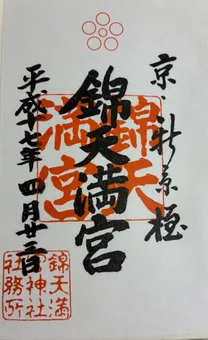 京・新京極
錦天満宮
平成十七年四月廿二日
錦天
満宮
錦天満
神社
社務所